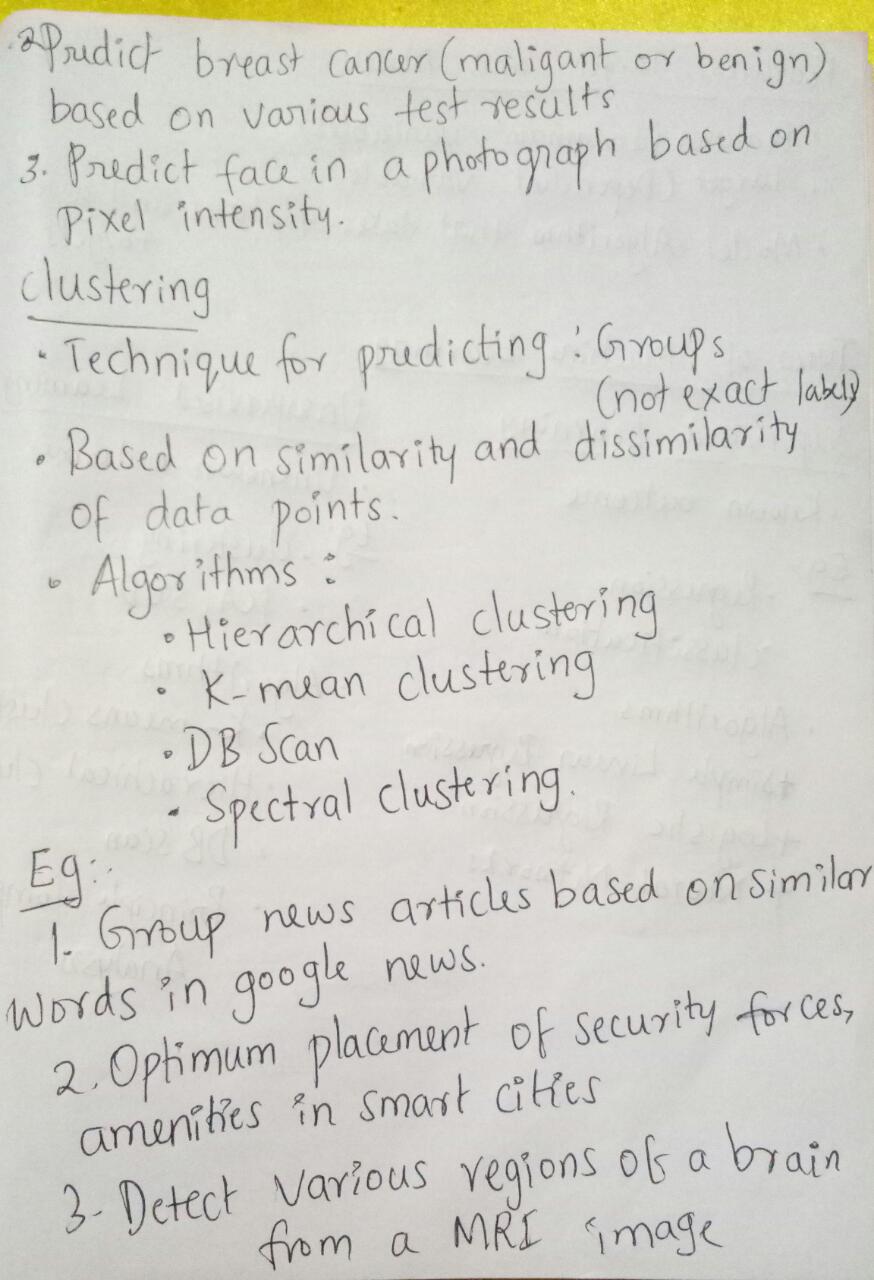 2 Predict breast cancer (maligant or benign)
based on various test results
3. Predict face in a photograph based on
pixel intensity.
clustering
• Technique for predicting : Groups
(not exact labels)
• Based on similarity and dissimilarity
of data points.
• Algorithms :
• Hierarchical clustering
• K-mean clustering
• DB Scan
• Spectral clustering.
Eg:-
1. Group news articles based on similar
words in google news.
2. Optimum placement of security forces,
amenities in smart cities
3. Detect various regions of a brain
from a MRI image